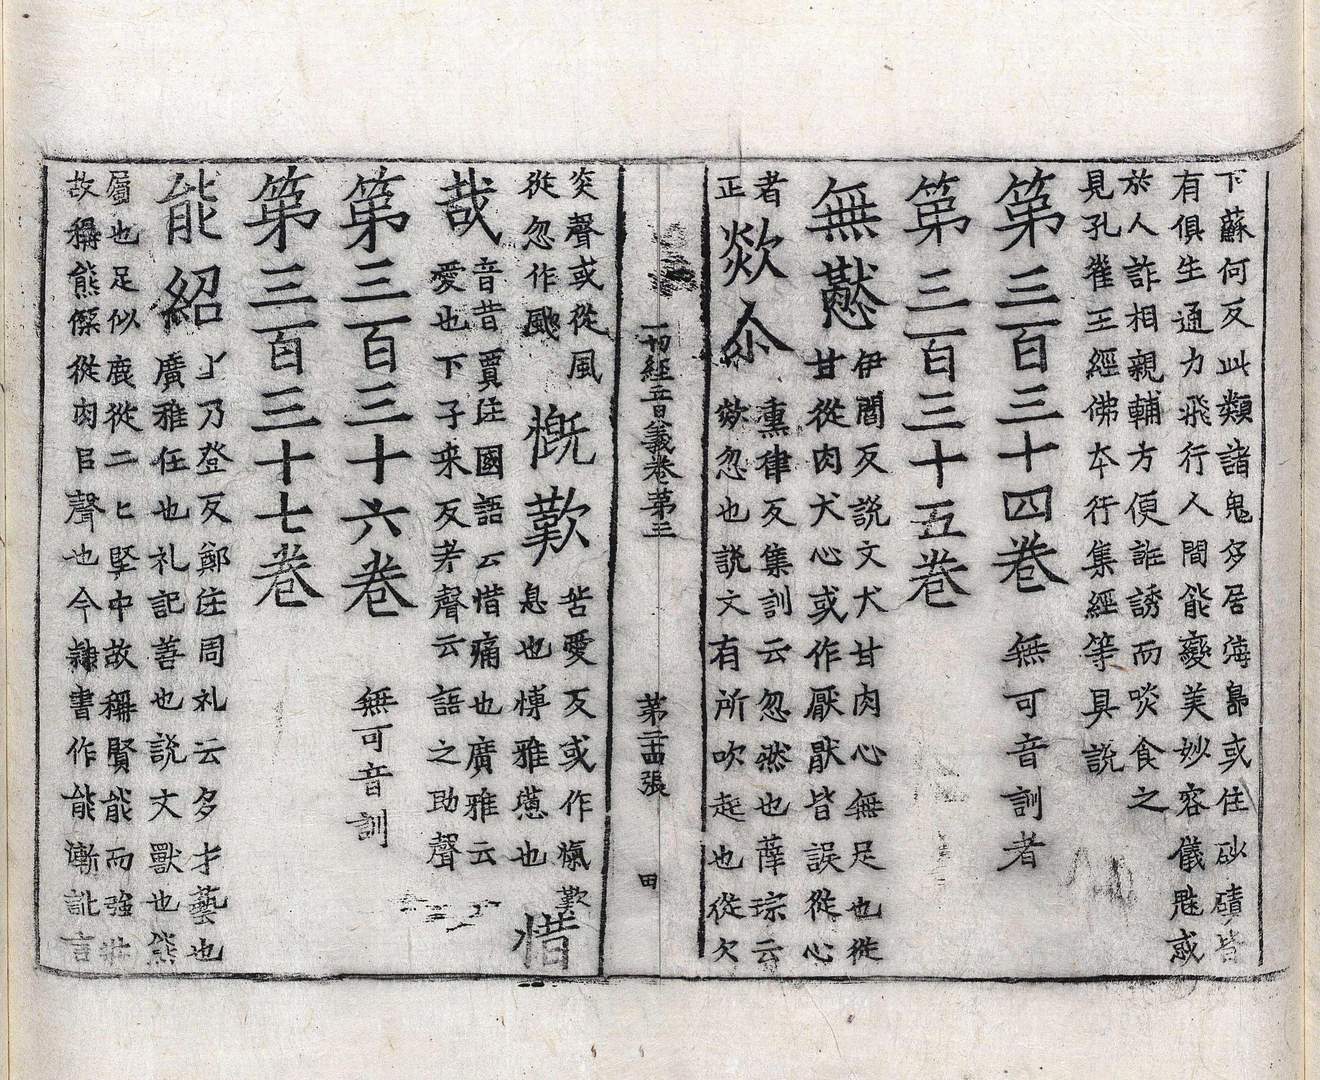 下蘇何反此類諸鬼多居海島或住砂磧皆
有俱生通力飛行人間能變美妙容儀魅惑
於人詐相親輔方便誑誘而啖食之
見孔雀王經佛本行集經等具說
第三百三十四卷 無可音訓者
第三百三十五卷
無
伊閻反說文犬甘肉心無足也從
甘從肉犬心或作厭猒皆誤從心
者
正
欻尒
熏律反集訓云忽然也薛琮云
欻忽也說文有所吹起也從欠
一切經音義卷第三 第二十四張 田
炎聲或從風
從忽作颮
慨歎
苦愛反或作愾歎
息也博雅懣也
惜
哉
音昔賈注國語云惜痛也廣雅云
愛也下子来反聲云語之助聲
第三百三十六卷 無可音訓
第三百三十七卷
能紹
上乃登反鄭注周礼云多才藝也
廣雅任也礼記善也說文獸也熊
屬也足似鹿從二匕堅中故稱賢能而強壯
故稱熊傑從肉㠯聲也今隸書作能漸訛言